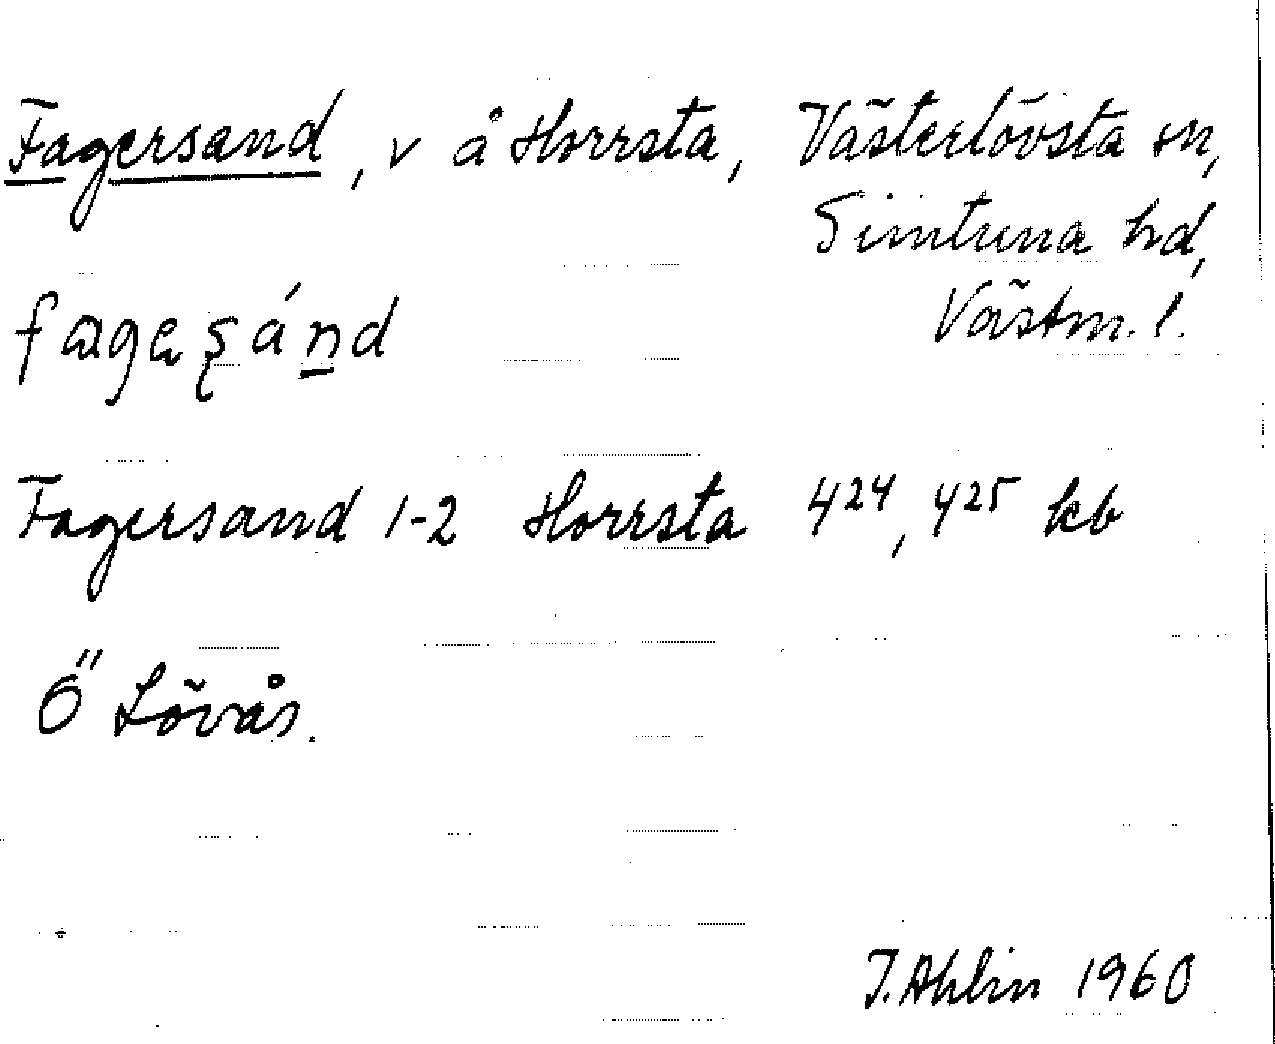 Fagersand, v å Horrsta, Västerlövsta sn,
Simtuna hd,
Västm. l.
Fagersand 1-2 Horrsta 424, 425 kb
Ö Lövås.
J. Ahlin 1960